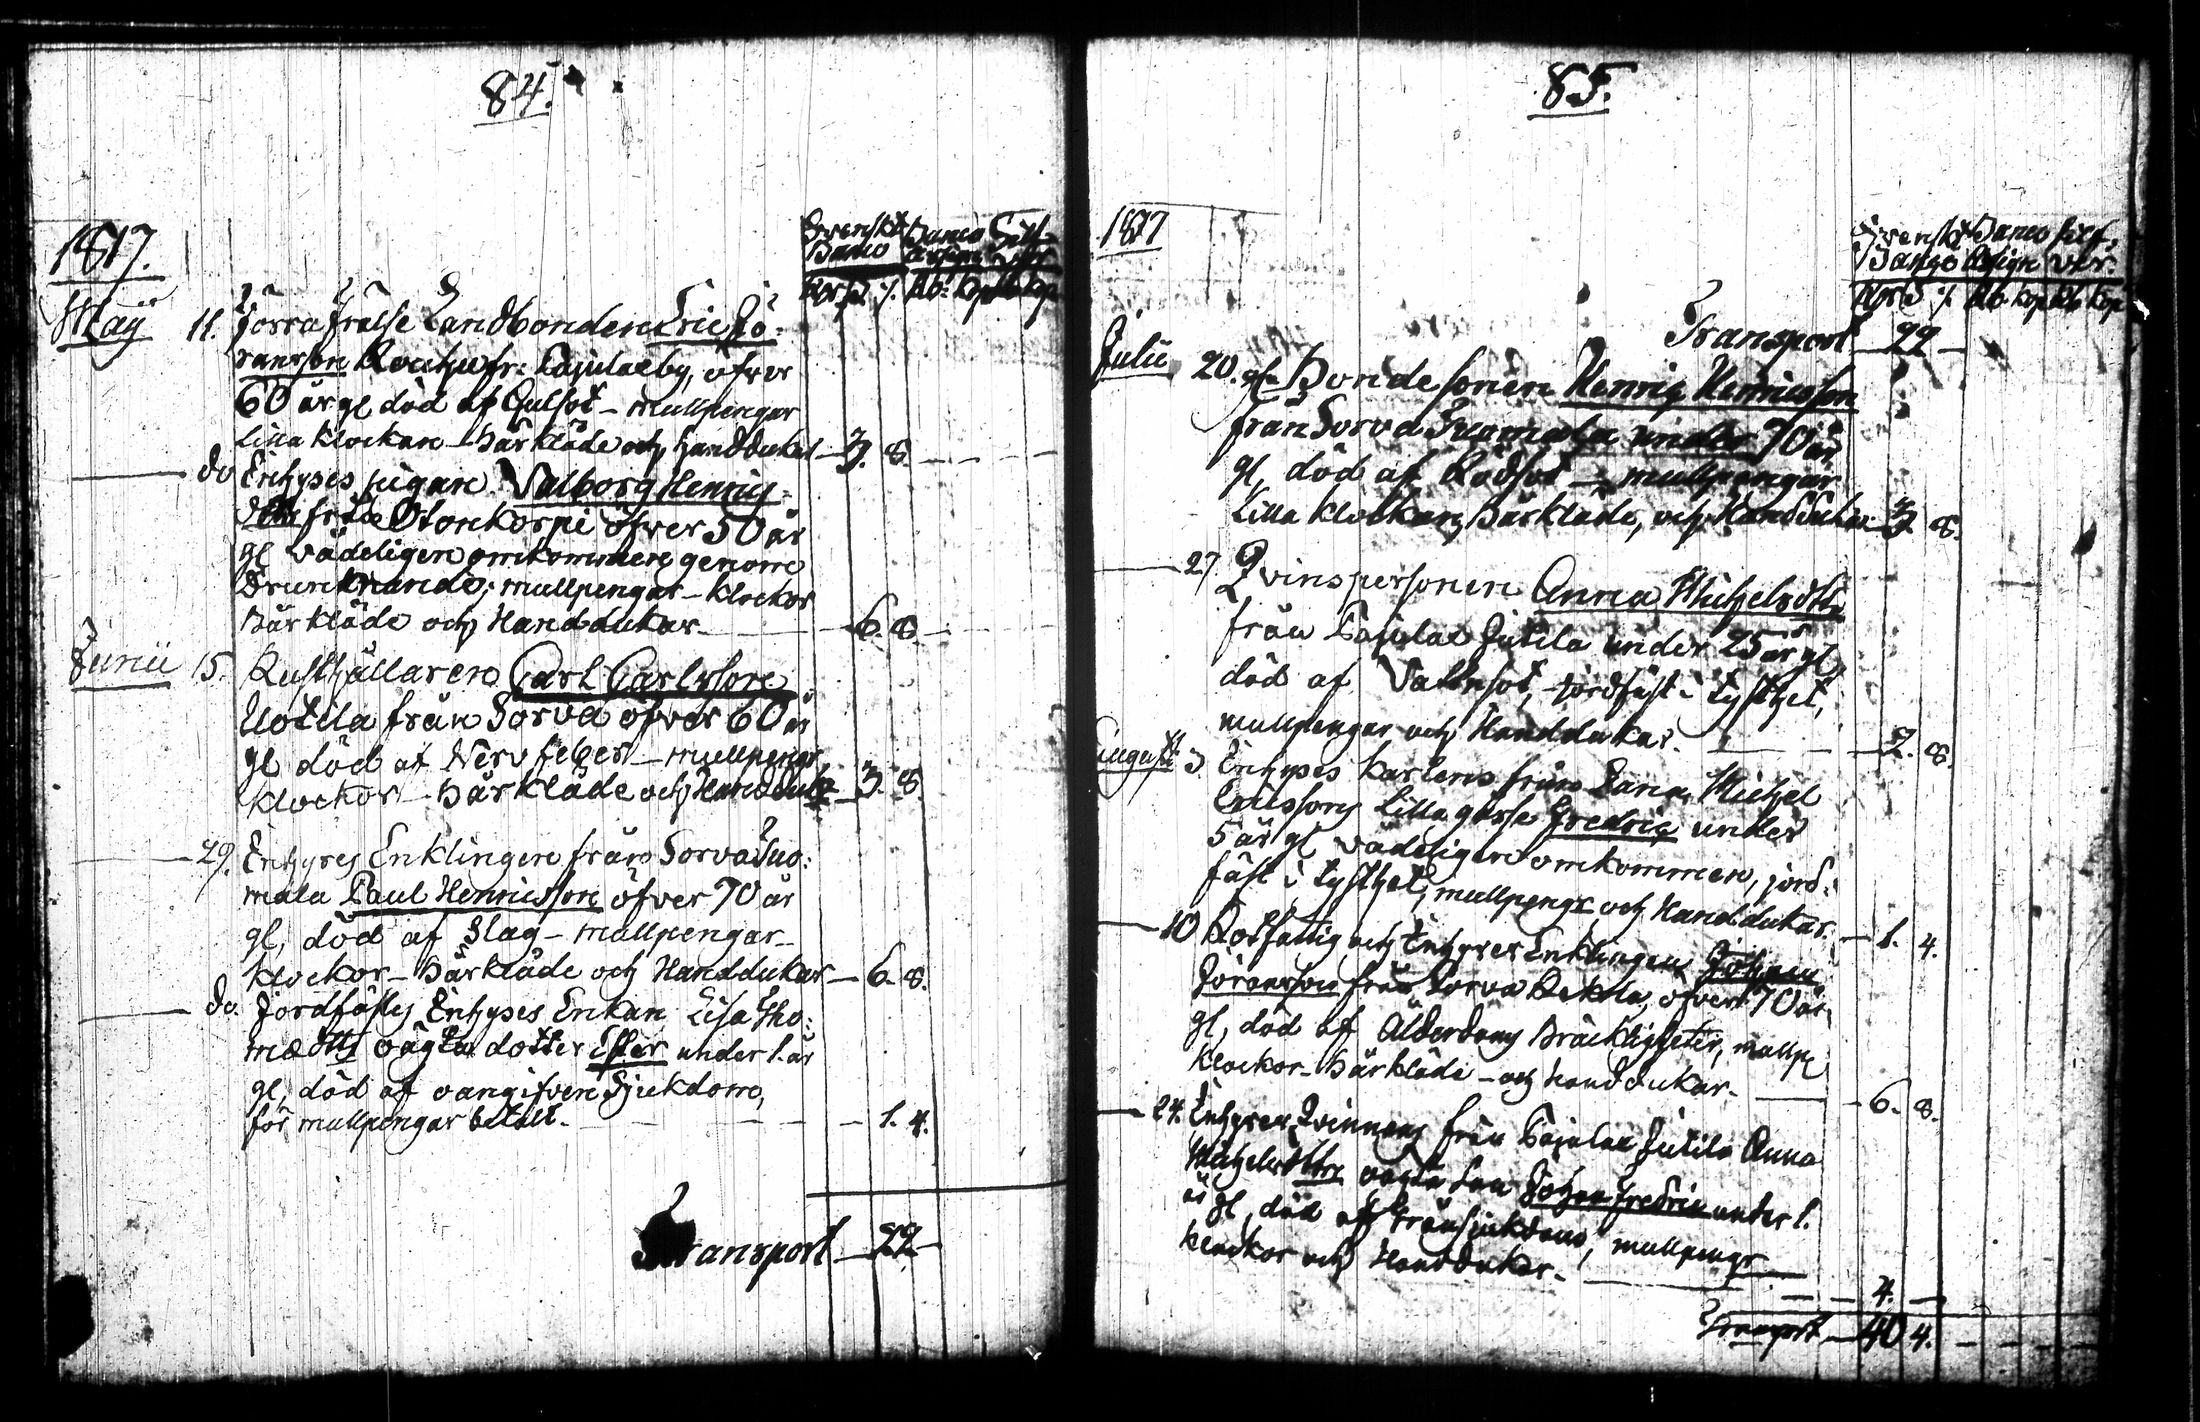 84.
1817.
Svenskt Banco Silf-
Banco Assign. ver
RgsD. s. Rb: Kop Rb Kop
Maij 11. Förra frälse Landbonden Eric Jö-
ransson fr: Pajulaeby, öfver
60 år gl. död af Gulsot - mullpengar
Lilla Klockan - Bårkläde och handdukar - 3. 8.
do Inhyses pigan Valborg Henrics-
från Otonkorpi öfver 50 år
gl vådeligen omkommen genom
Drunknande; mullpengar - Klockor
Bårkläde och Handdukar - 6. 8.
Junii 15. Rusthållaren Carl Carlsson
Uotila från Sorva öfver 60 år
gl död af Nerv feber - mullpengr,
Klockor - Bårkläde och Handduk - 3. 8.
29. Inhyses Enklingen från Sorva Suo-
mala Paul Henricsson öfver 70 år
gl, död af Slag - mullpengar -
Klockor - Bårkläde och Handdukar - 6. 8.
do. Jordfästes Inhyses Enkan Lisa Tho-
mædtrs oägta dotter Ester under 1. år
gl, död af oangifven Sjukdom,
för mullpengar betalt - 1. 4.
Transport - 22 -
85.
1817
Svenskt Banco Silf-
Banco Assign. ver.
RgsD s. Rb. Kop Rb Kop
Transport 22 -
Julii 20. Bondesonen Henric Henricsson
från Sorva Suomala under 70 år
gl, död af Rödsot - mullpengar
Lilla Klockan, Bårkläde, och Handdukar 3. 8.
27 Qvinspersonen Anna Michelsdttr
från Pajulae Jutila under 25 år gl,
död af Vattusot, - jordfäst i tysthet,
mullpengar och Handdukar. 2. 8.
Augusti 3 Inhyses karlens från Michel
Ericssons Lilla gosse Fredric under
5 år gl vådeligen omkommen, jord-
fäst i tysthet, mullpengr och Handdukar. - 1. 4.
10 Rotfattig och Inhyses Enklingen Johan
Jöransson från Sorva öfver 70 år
gl, död af Ålderdoms Bräckligheter, mullpr
Klockor - Bårkläde - och handdukar. - 6. 8.
24. Inhyses Qvinnans från Pajulae Jutila Anna
Michelsdttr oägta Son Johan Fredric under 1.
år gl, död af mullpengr
Klockor och Handdukar. - 4. -
Transport - 40 4.